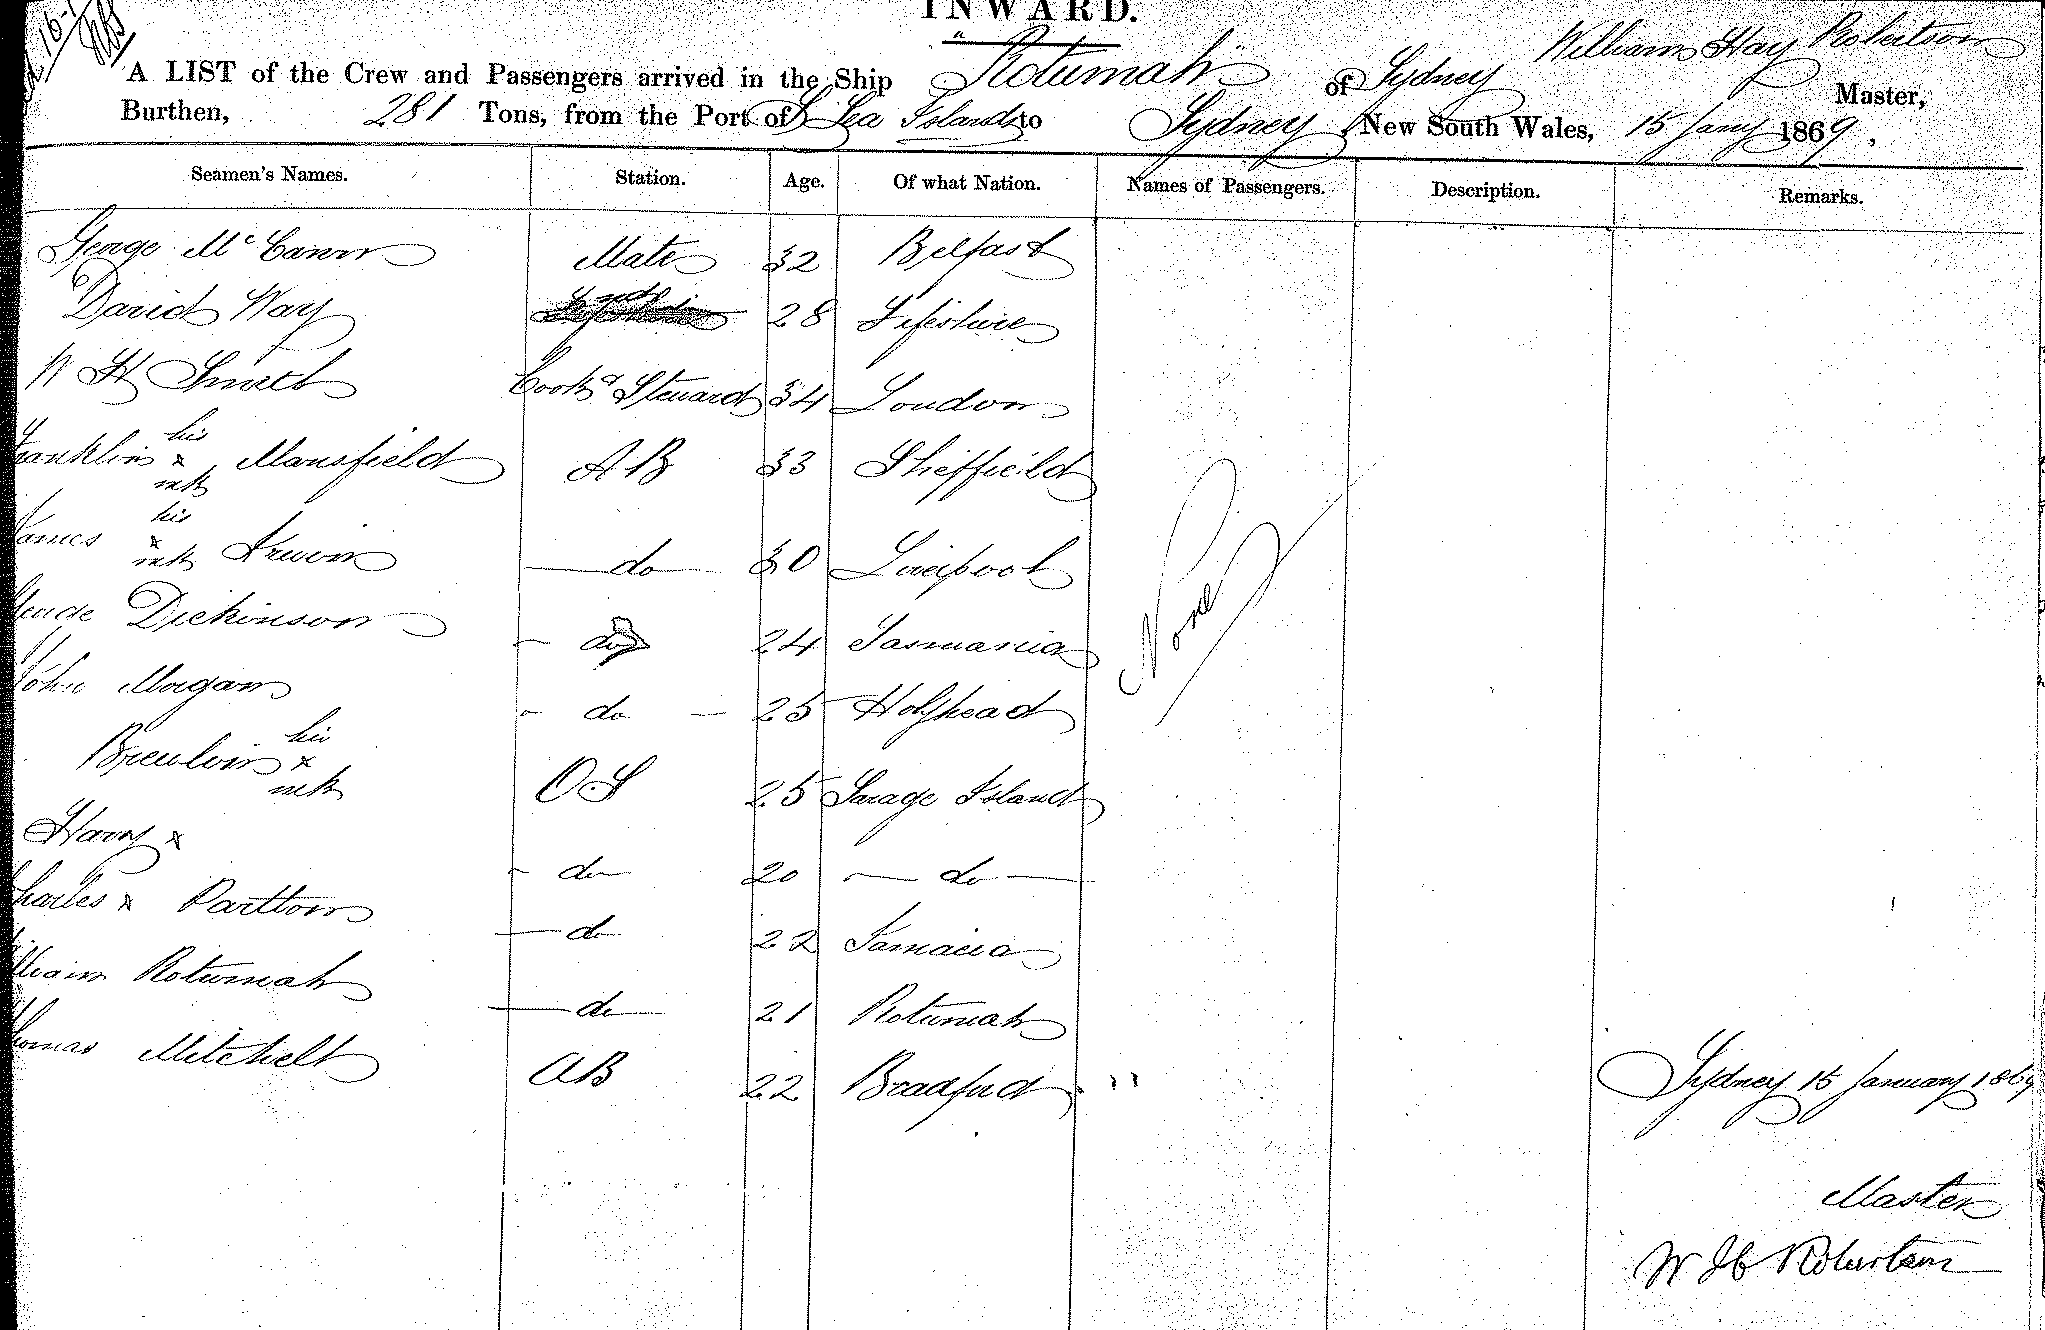 INWARD.
A LIST of the Crew and Passengers arrived in the Ship "Rotumah" of Sydney William Hay Robertson Master,
Burthen, 281 Tons, from the Port of S Sea Islands to Sydney New South Wales, 15 Jany 1869.
Seamen's Names. Station. Age. Of what Nation. Names of Passengers. Description. Remarks.
George McCann Mate 32 Belfast
David Way 28 Fifeshire
W H Smith Cook & Steward 34 London
Franklin his x mk Mansfield AB 33 Sheffield
James his x mk Irwin do 30 Liverpool
George Dickinson do 24 Tasmania
None
John Morgan do 25 Holyhead
his x mk OS 25 Savage Island
Harry x do 20 do
Charles x Parttom do 22 Jamaica
William Rotumah do 21 Rotumah
Thomas Mitchell AB 22 Bradford " Sydney 15 January 1869
Master
W H Robertson